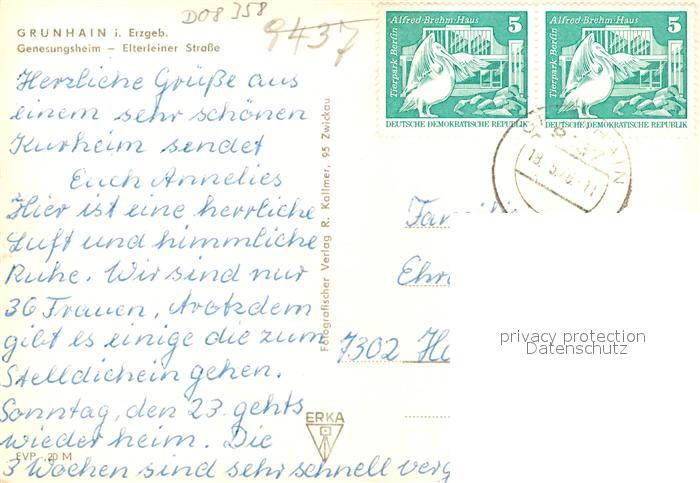 DO8 358
9437
GRUNHAIN i. Erzgeb.
Genesungsheim – Elterleiner Straße
Herzliche Grüße aus
einem sehr schönen
Kurheim sendet
Euch Annelies
Hier ist eine herrliche
Luft und himmliche
Ruhe. Wir sind nur
36 Frauen, trotzdem
gibt es einige die zum
Stelldichein gehen.
Sonntag, den 23. gehts
wieder heim. Die
3 Wochen sind sehr schnell verg
EVP -,20 M
Fotografischer Verlag R. Kallmer, 95 Zwickau
ERKA
Alfred-Brehm-Haus 5
Tierpark Berlin
DEUTSCHE DEMOKRATISCHE REPUBLIK
Alfred-Brehm-Haus 5
Tierpark Berlin
DEUTSCHE DEMOKRATISCHE REPUBLIK
18.5.76
Fam
Ehr
7302 Ha
privacy protection
Datenschutz